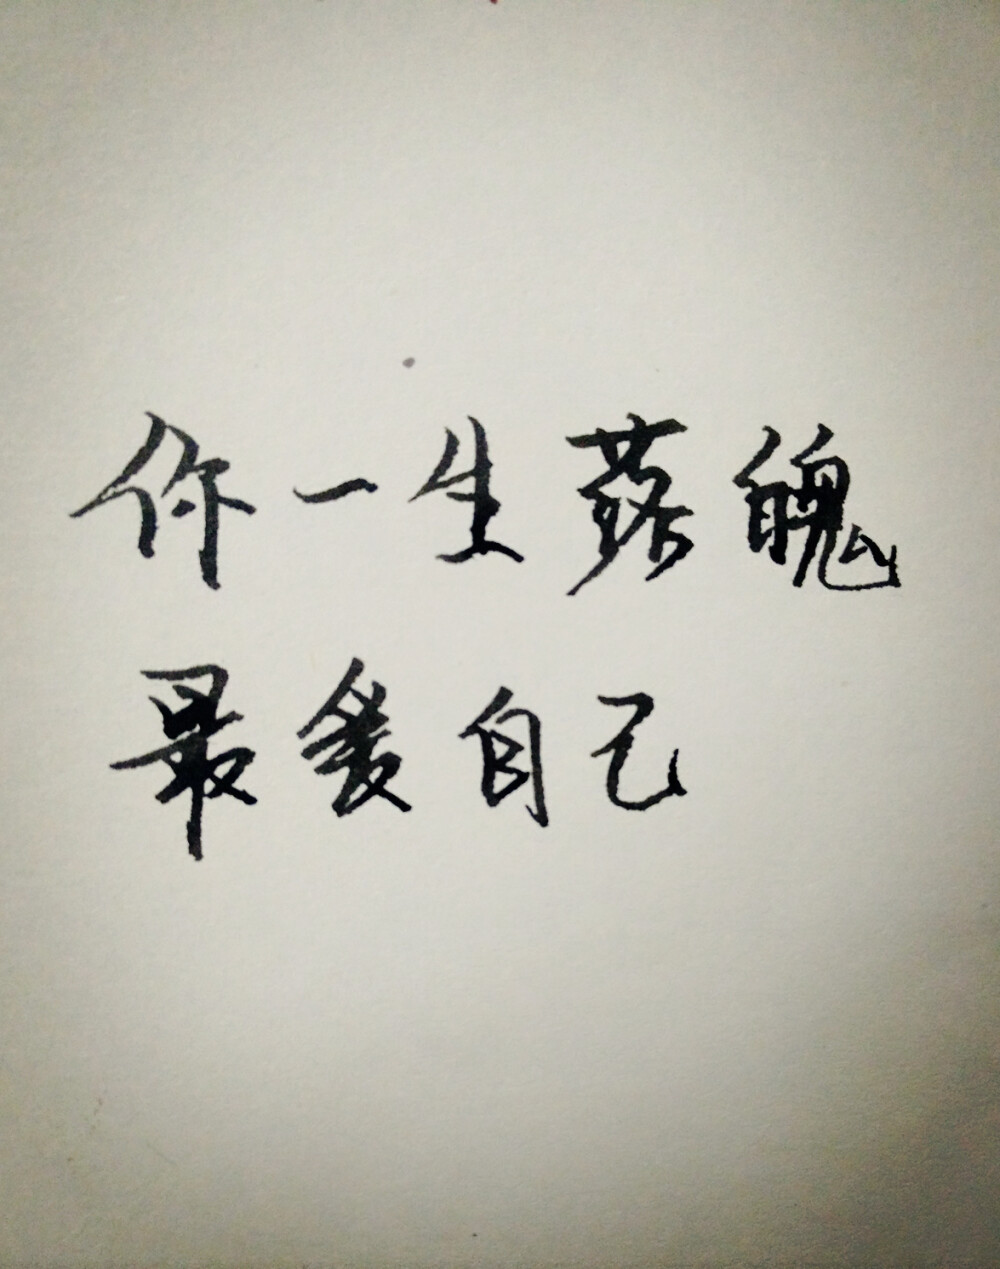 你一生落魄
最爱自己